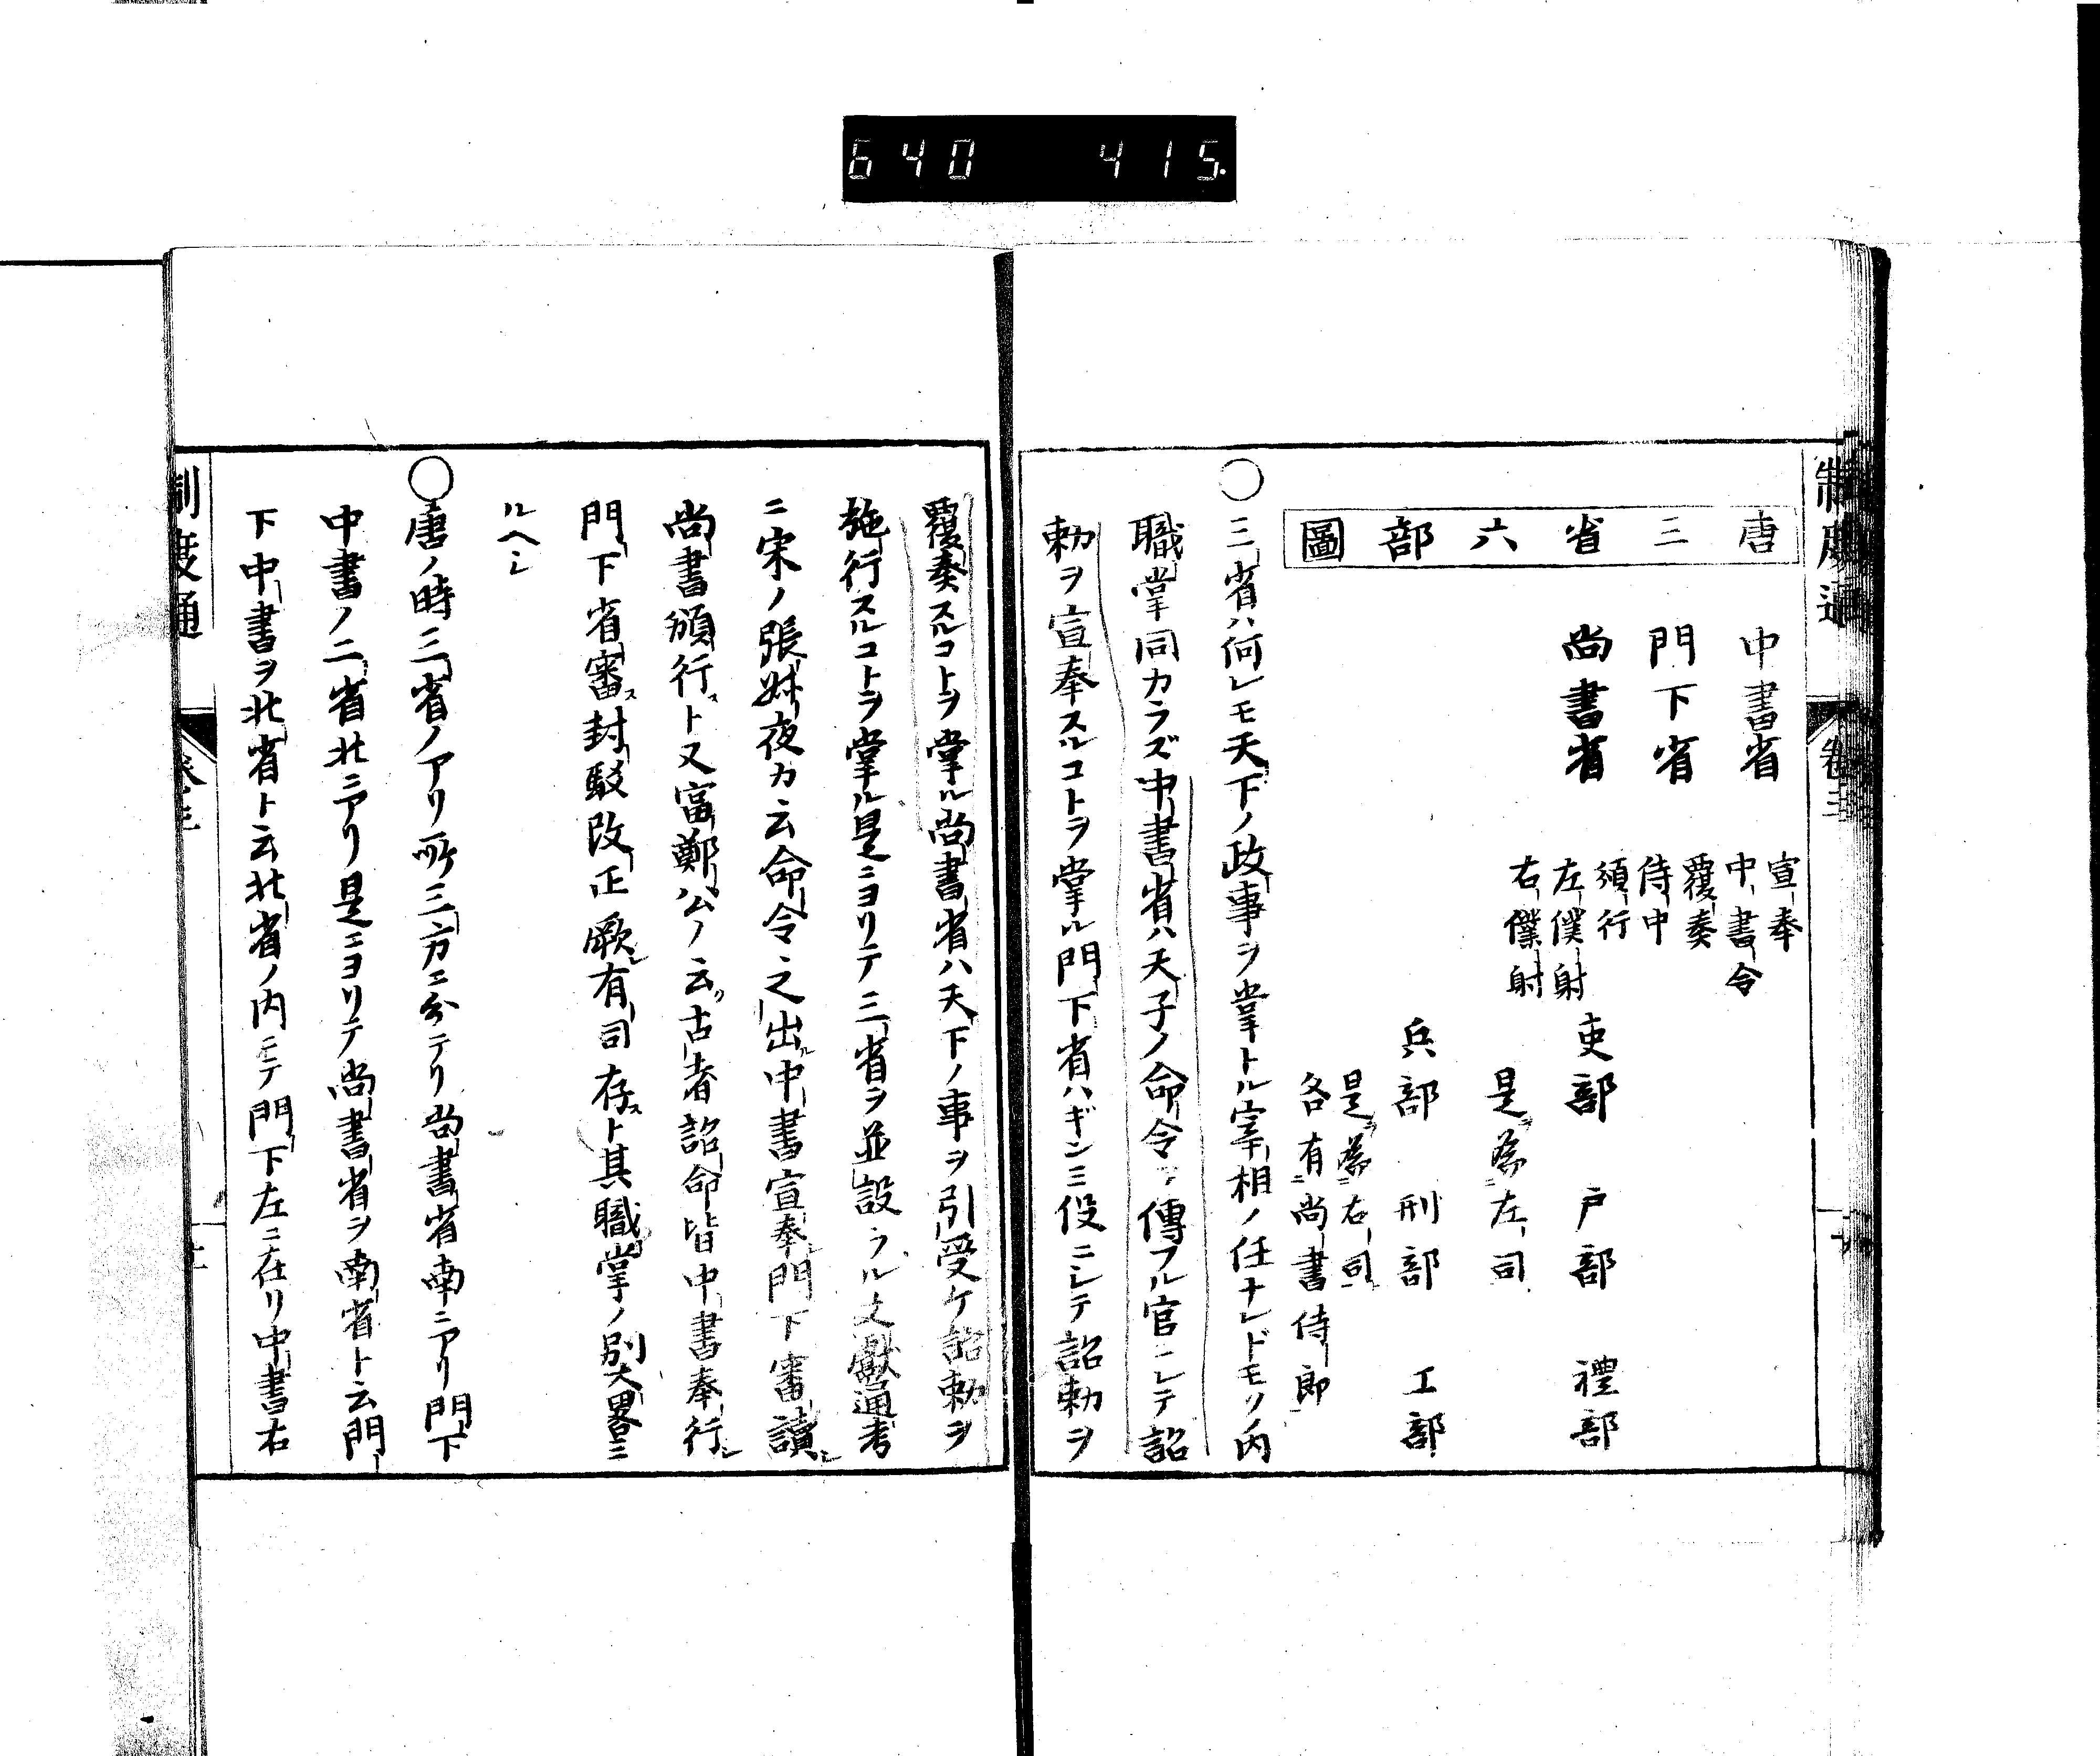 640 415
制度通 卷三
唐三省六部圖
中書省 宣奉 中書令
門下省 覆奏 侍中
尚書省 頒行 左僕射 右僕射
吏部 戶部 禮部
是為左司
兵部 刑部 工部
是為右司
各有尚書侍郎
〇三省ハ何レモ天下ノ政事ヲ掌トル宰相ノ任ナレドモソノ内
職掌同カラズ中書省ハ天子ノ命令ヲ傳フル官ニシテ詔
勅ヲ宣奉スルコトヲ掌ル門下省ハギンミ役ニシテ詔勅ヲ
覆奏スルコトヲ掌ル尚書省ハ天下ノ事ヲ引受ケ詔勅ヲ
施行スルコトヲ掌ル是ニヨリテ三省ヲ並設ラル文獻通考
ニ宋ノ張叔夜カ云命令之出ル中書宣奉門下審讀シ
尚書頒行スト又富鄭公ノ云ク古者詔命皆中書奉行シ
門下省審ス封駁改正厥レ有司存スト其職掌ノ別大畧ミ
ルヘシ
〇唐ノ時三省ノアリ所三方ニ分テリ尚書省南ニアリ門下
中書ノ二省北ニアリ是ニヨリテ尚書省ヲ南省ト云門
下中書ヲ北省ト云北省ノ内ニテ門下左ニ在リ中書右
制度通 卷三